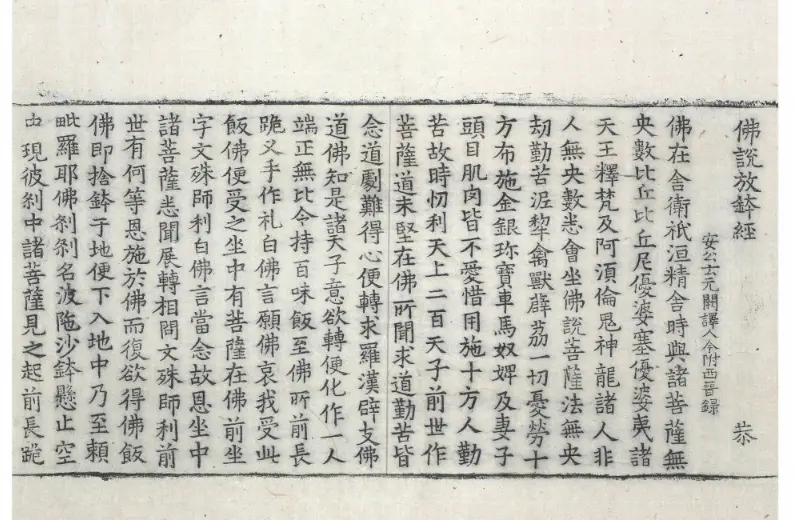 佛說放鉢經
恭
安公云元闕譯人今附西晉錄
佛在舍衛祇洹精舍時與諸菩薩無
央數比丘比丘尼優婆塞優婆夷諸
天王釋梵及阿須倫鬼神龍諸人非
人無央數悉會坐佛說菩薩法無央
劫勤苦泥犂禽獸薜荔一切憂勞十
方布施金銀珎寶車馬奴婢及妻子
頭目肌肉皆不愛惜用施十方人勤
苦故時忉利天上二百天子前世作
菩薩道未堅在佛所聞求道勤苦皆
念道劇難得心便轉求羅漢辟支佛
道佛知是諸天子意欲轉便化作一人
端正無比令持百味飯至佛所前長
跪叉手作礼白佛言願佛哀我受此
飯佛便受之坐中有菩薩在佛前坐
字文殊師利白佛言當念故恩坐中
諸菩薩悉聞展轉相問文殊師利前
世有何等恩施於佛而復欲得佛飯
佛即捨鉢于地便下入地中乃至賴
毗羅耶佛剎剎名波陁沙鉢懸止空
中現彼剎中諸菩薩見之起前長跪